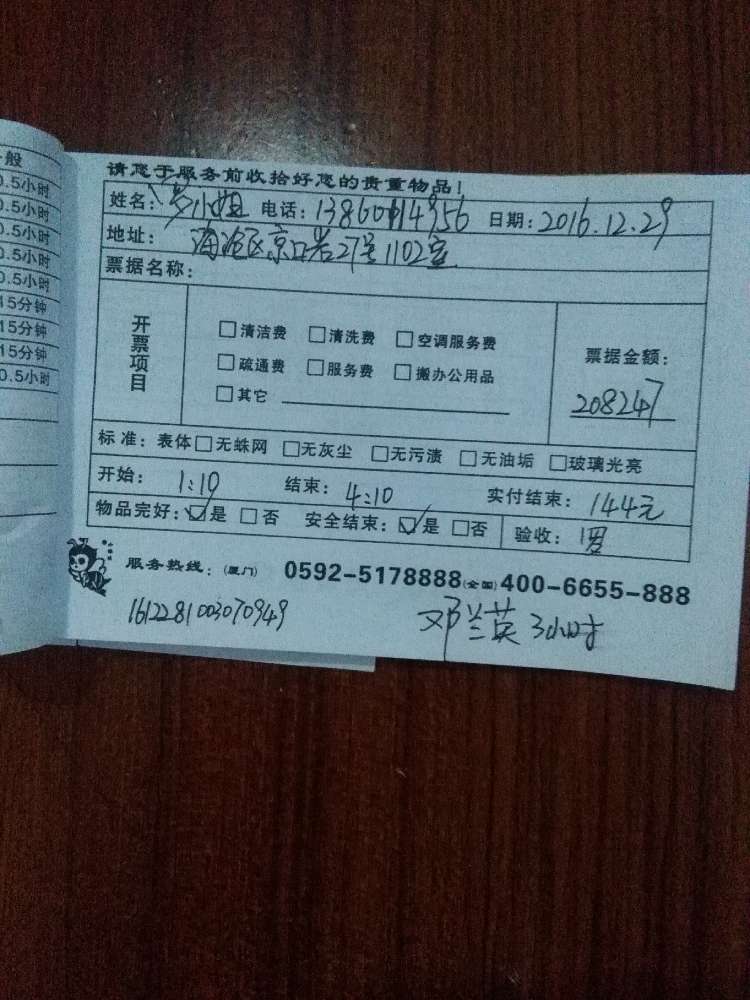 般
0.5小时
0.5小时
0.5小时
0.5小时
15分钟
15分钟
15分钟
0.5小时
请您于服务前收拾好您的贵重物品！
姓名：罗小姐 电话：13860114956 日期：2016.12.29
地址：海沧区京口岩27号1102室
票据名称：
开票项目
□清洁费 □清洗费 □空调服务费
□疏通费 □服务费 □搬办公用品
□其它
票据金额：
208247
标准：表体□无蛛网 □无灰尘 □无污渍 □无油垢 □玻璃光亮
开始：1:10 结束：4:10 实付结束：144元
物品完好：☑是 □否 安全结束：☑是 □否 验收：罗
服务热线：(厦门) 0592-5178888(全国)400-6655-888
1612281003070949 邓兰英 3小时